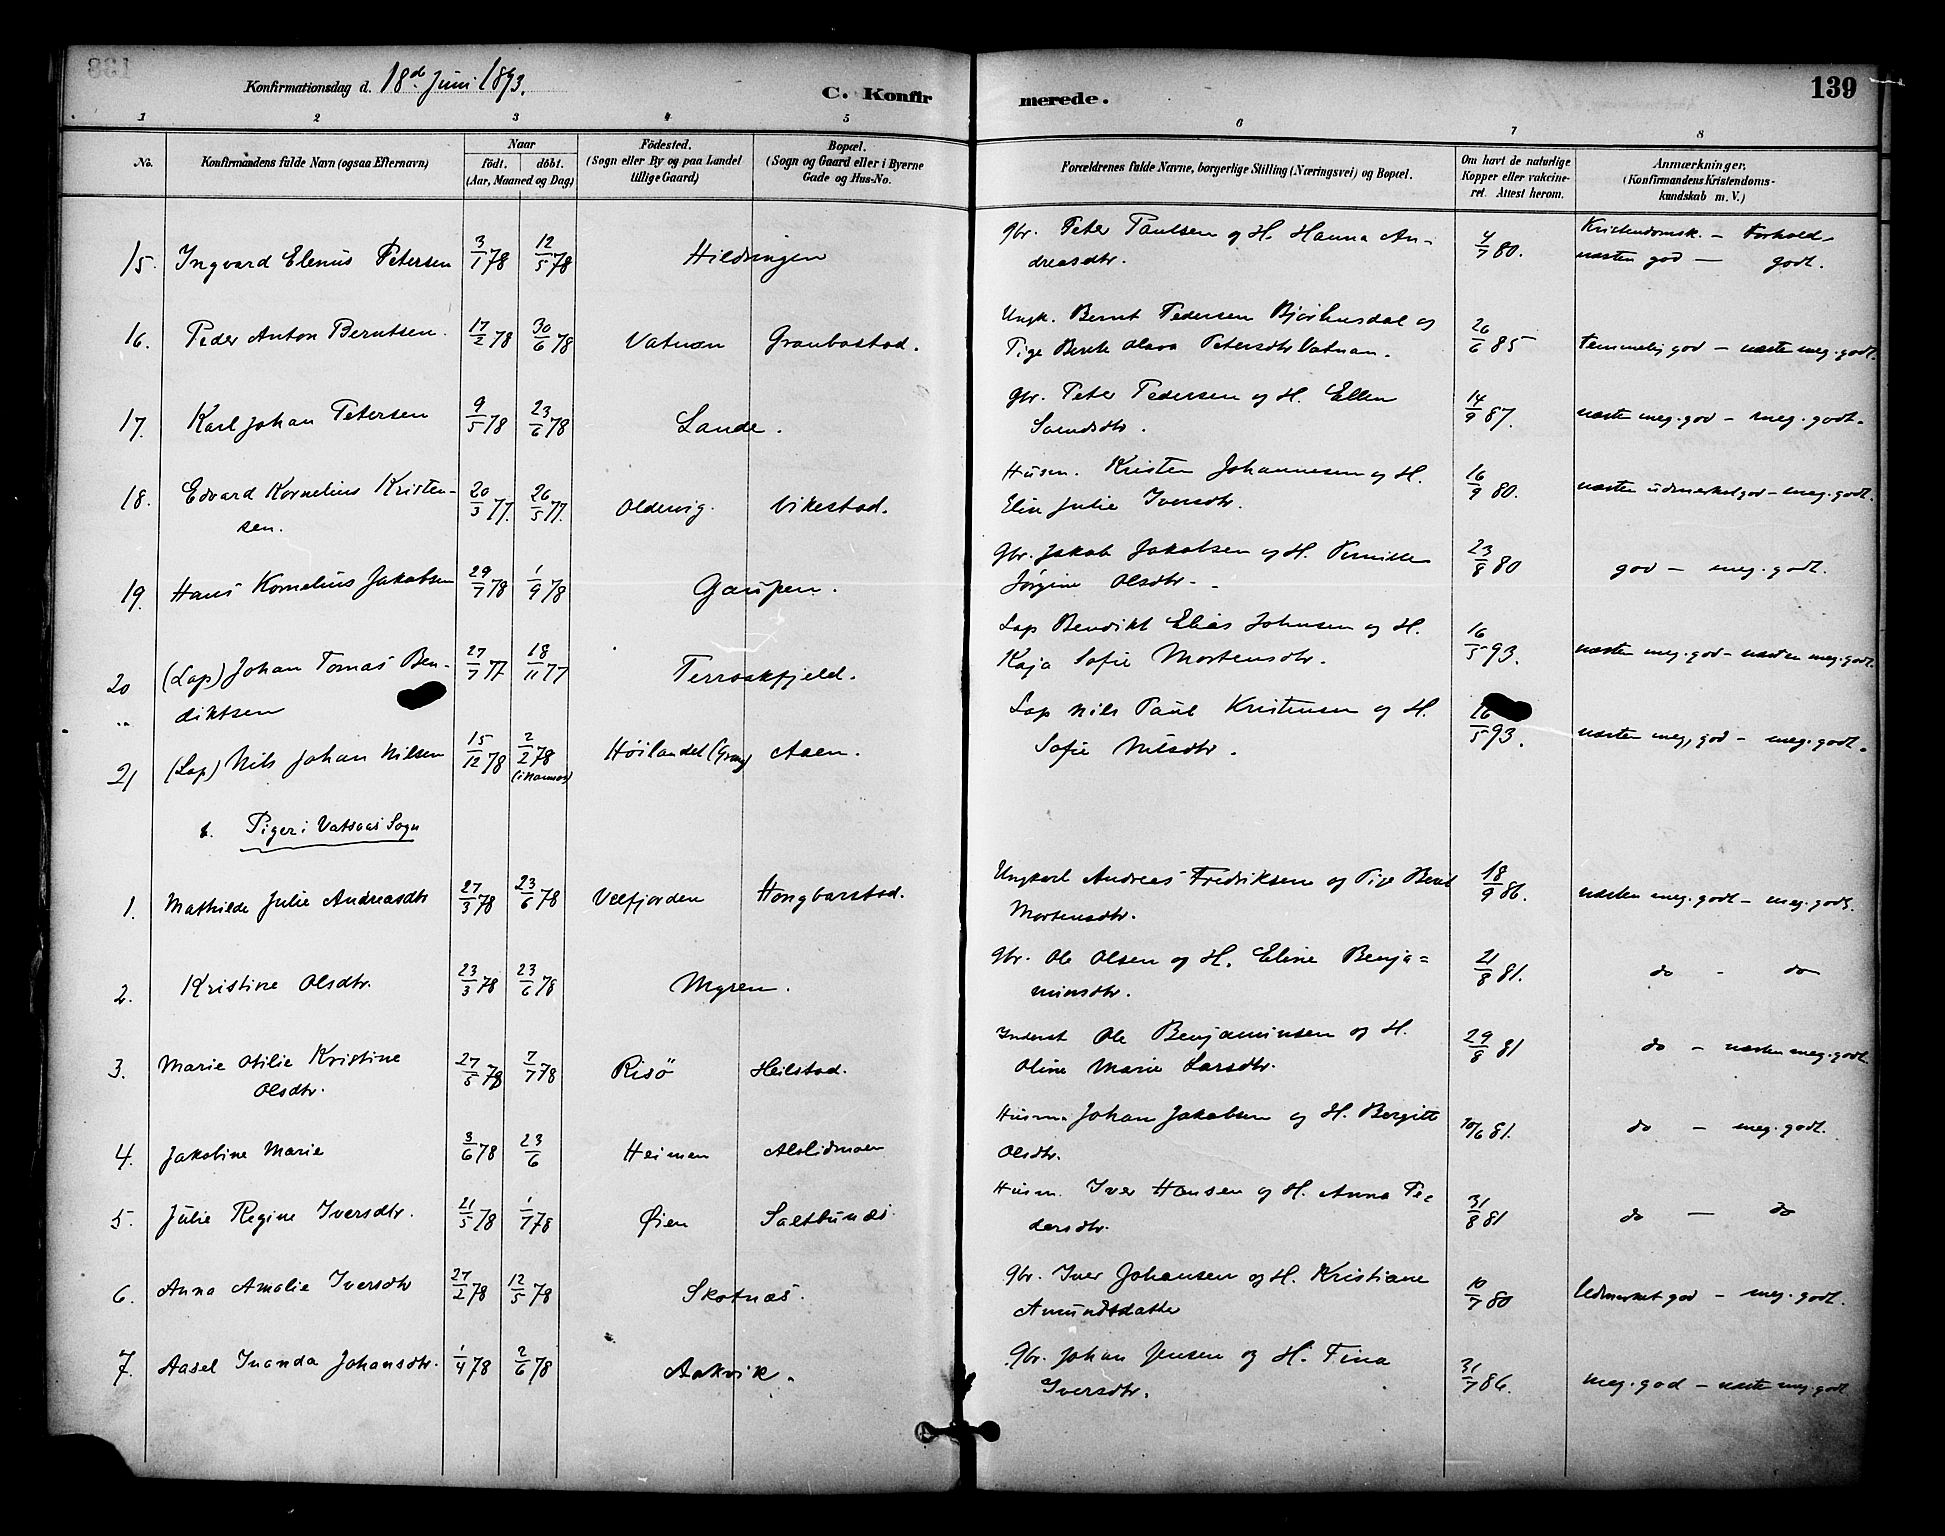 Konfirmationsdag d. 18d Juni 1893.
C. Konfir
merede.
139
1 2 3 4 5 6 7 8
No.
Konfirmandens fulde Navn (ogsaa Efternavn)
Naar
født. døbt.
(Aar, Maaned og Dag)
Fødested.
(Sogn eller By og paa Landet
tillige Gaard)
Bopæl.
(Sogn og Gaard eller i Byerne
Gade og Hus-No.
Forældrenes fulde Navne, borgerlige Stilling (Næringsvei) og Bopæl.
Om havt de naturlige
Kopper eller vakcine-
ret. Attest herom.
Anmærkninger.
(Konfirmandens Kristendoms-
kundskab m. V.)
15. Ingvard Elenius Petersen 3/1 78 12/5 78 Hildringen Gbr. Peter Paulsen og H. Hanna An-
dreasdtr. 4/7 80. Kristendomsk. - Forhold
næsten god - godt.
16. Peder Anton Berntsen. 17/2 78 30/6 78 Vatnan Granbostad. Ungk. Bernt Pedersen Bjørhusdal og
Pige Berit Olava Petersdtr Vatnan. 26/6 85 temmelig god - næsten meg. godt.
17. Karl Johan Petersen 9/5 78 23/6 78 Lande. Gbr. Peter Pedersen og H. Ellen
Svendsdtr. 14/9 87. næsten meg. god - meg. godt.
18. Edvard Kornelius Kristen-
sen. 20/3 77. 26/5 77. Oldervig. Vikestad. Husm. Kristen Johannesen og H.
Elin Julie Iversdtr. 16/9 80. næsten udmerket god - meg. godt.
19. Hans Kornelius Jakobsen 29/7 78 1/9 78 Gaupen. Gbr. Jakob Jakobsen og H. Pernille
Jørgine Olsdtr. - 23/8 80 god - meg. godt.
20 (Lap) Johan Tomas Ben-
" diktsen 27/7 77 18/11 77 Terraakfjeld. Lap Bendikt Elias Johnsen og H.
Kaja Sofie Mortensdtr. 16/5 93. næsten meg. god - næsten meg. godt.
21 (Lap) Nils Johan Nilsen 15/12 78 2/2 78 Høilandet (Grong) Aaen. Lap Nils Paul Kristensen og H.
Sofie Nilsdtr. 16/5 93. næsten meg. god - meg. godt.
Piger i Vatsaas Sogn
1. Mathilde Julie Andreasdtr 27/3 78 23/6 78 Velfjorden Hongbarstad. Ungkarl Andreas Fredriksen og Pige Berit
Mortensdtr. 18/9 86. næsten meg. godt - meg. godt.
2. Kristine Olsdtr. 23/3 78 23/6 78 Myren. Gbr. Ole Olsen og H. Eline Benja=
minsdtr. 21/8 81. do - do
3. Marie Otilie Kristine
Olsdtr. 27/5 78 7/7 78 Risö Heilstad. Inderst Ole Benjaminsen og H.
Oline Marie Larsdtr. 29/8 81 do - næsten meg. godt
4. Jakobine Marie 3/6 78 23/6 Heimen Husm. Johan Jakobsen og H. Bergitte
Olsdtr. 10/6 81. do - meg. godt.
5. Julie Regine Iversdtr. 21/5 78 1/7 78 Øien Saltbunes Husm. Iver Hansen og H. Anna Pe-
dersdtr. 31/8 81 do - do
6. Anna Amalie Iversdtr 27/2 78 12/5 78 Skotnæs. Gbr. Iver Johansen og H. Kristiane
Amundsdatter 10/7 80 Udmerket god - meg. godt.
7. Aasel Inanda Johansdtr. 1/4 78 2/6 78 Aakvik. Gbr. Johan Jensen og H. Fina
Iversdtr. 31/7 86. meg. god - næsten meg. godt